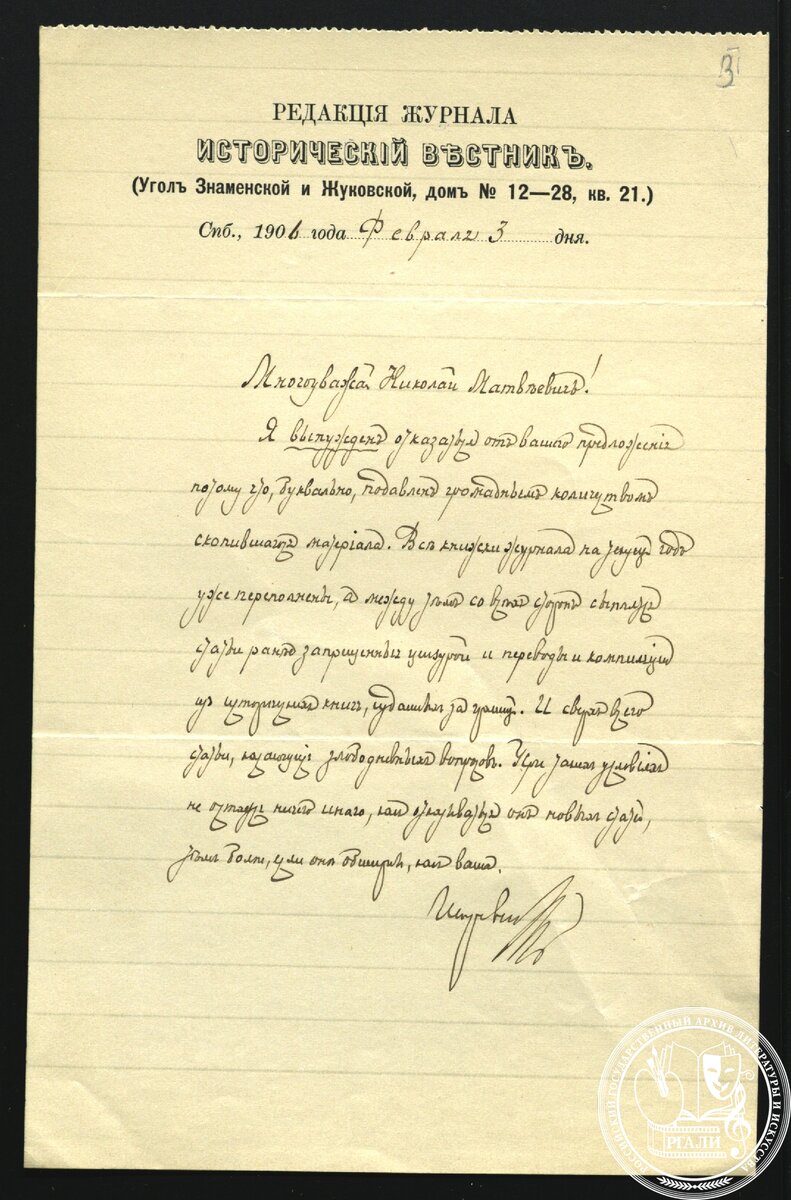 3
РЕДАКЦІЯ ЖУРНАЛА
ИСТОРИЧЕСКІЙ ВѢСТНИКЪ.
(Уголъ Знаменской и Жуковской, домъ № 12—28, кв. 21.)
Спб., 1906 года Февраля 3 дня.
Многоуважа. Николай Матвѣевичъ!
Я вынужденъ отказаться отъ вашего предложенія
потому что, буквально, подавленъ громаднымъ количествомъ
скопившагося матеріала. Всѣ книжки журнала на текущ годъ
уже переполнены, а между тѣмъ со всѣхъ сторонъ сыплются
статьи ранѣе запрещенныя цензурой и переводы и компиляціи
изъ историческихъ книгъ, издавшихся за границ. И сверхъ всего
статьи, касающіяся злободневныхъ вопросовъ. При такихъ условіяхъ
не остается ничего иного, какъ отказываться отъ новыхъ статей,
тѣмъ болѣе, если онѣ обширны, какъ ваша.
РОССИЙСКИЙ ГОСУДАРСТВЕННЫЙ АРХИВ ЛИТЕРАТУРЫ И ИСКУССТВА
РГАЛИ